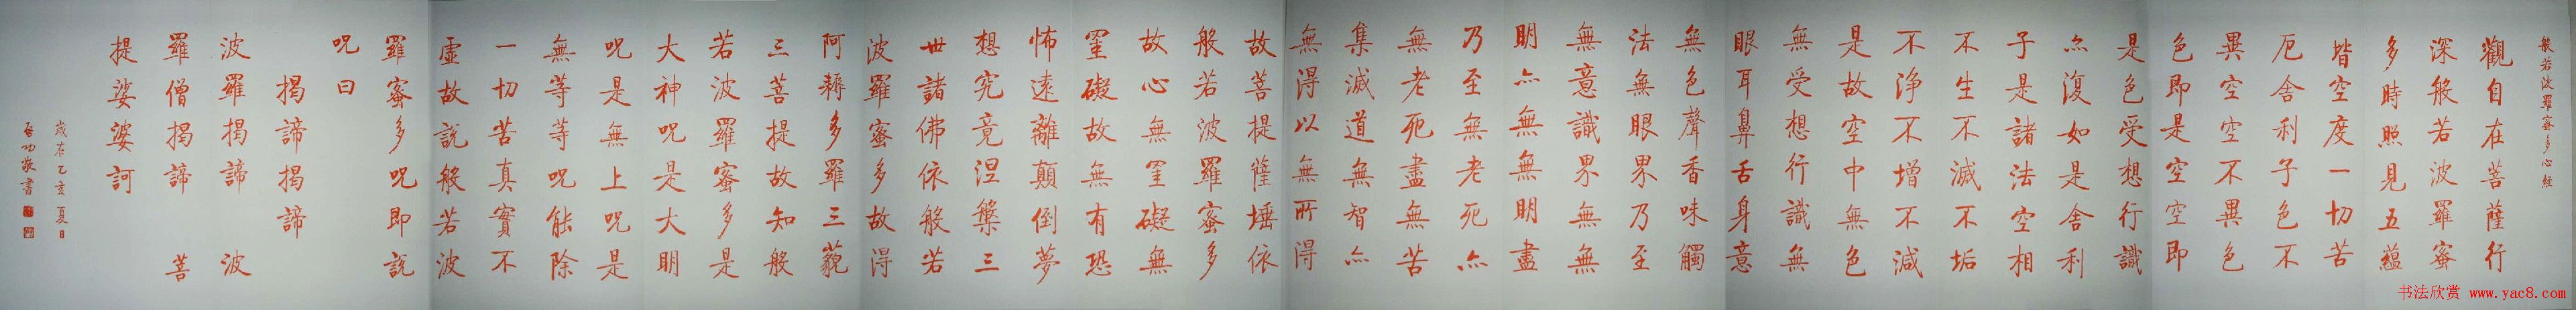 般若波羅蜜多心經
觀自在菩薩行
深般若波羅蜜
多時照見五蘊
皆空度一切苦
厄舍利子色不
異空空不異色
色即是空空即
是色受想行識
亦復如是舍利
子是諸法空相
不生不滅不垢
不淨不增不減
是故空中無色
無受想行識無
眼耳鼻舌身意
無色聲香味觸
法無眼界乃至
無意識界無無
明亦無無明盡
乃至無老死亦
無老死盡無苦
集滅道無智亦
無得以無所得
故菩提薩埵依
般若波羅蜜多
故心無罣礙無
罣礙故無有恐
怖遠離顛倒夢
想究竟涅槃三
世諸佛依般若
波羅蜜多故得
阿耨多羅三藐
三菩提故知般
若波羅蜜多是
大神呪是大明
呪是無上呪是
無等等呪能除
一切苦真實不
虛故說般若波
羅蜜多呪即說
呪曰
揭諦揭諦
波羅揭諦 波
羅僧揭諦 菩
提娑婆訶
歲在乙亥夏日
啓功敬書
书法欣赏 www.yac8.com